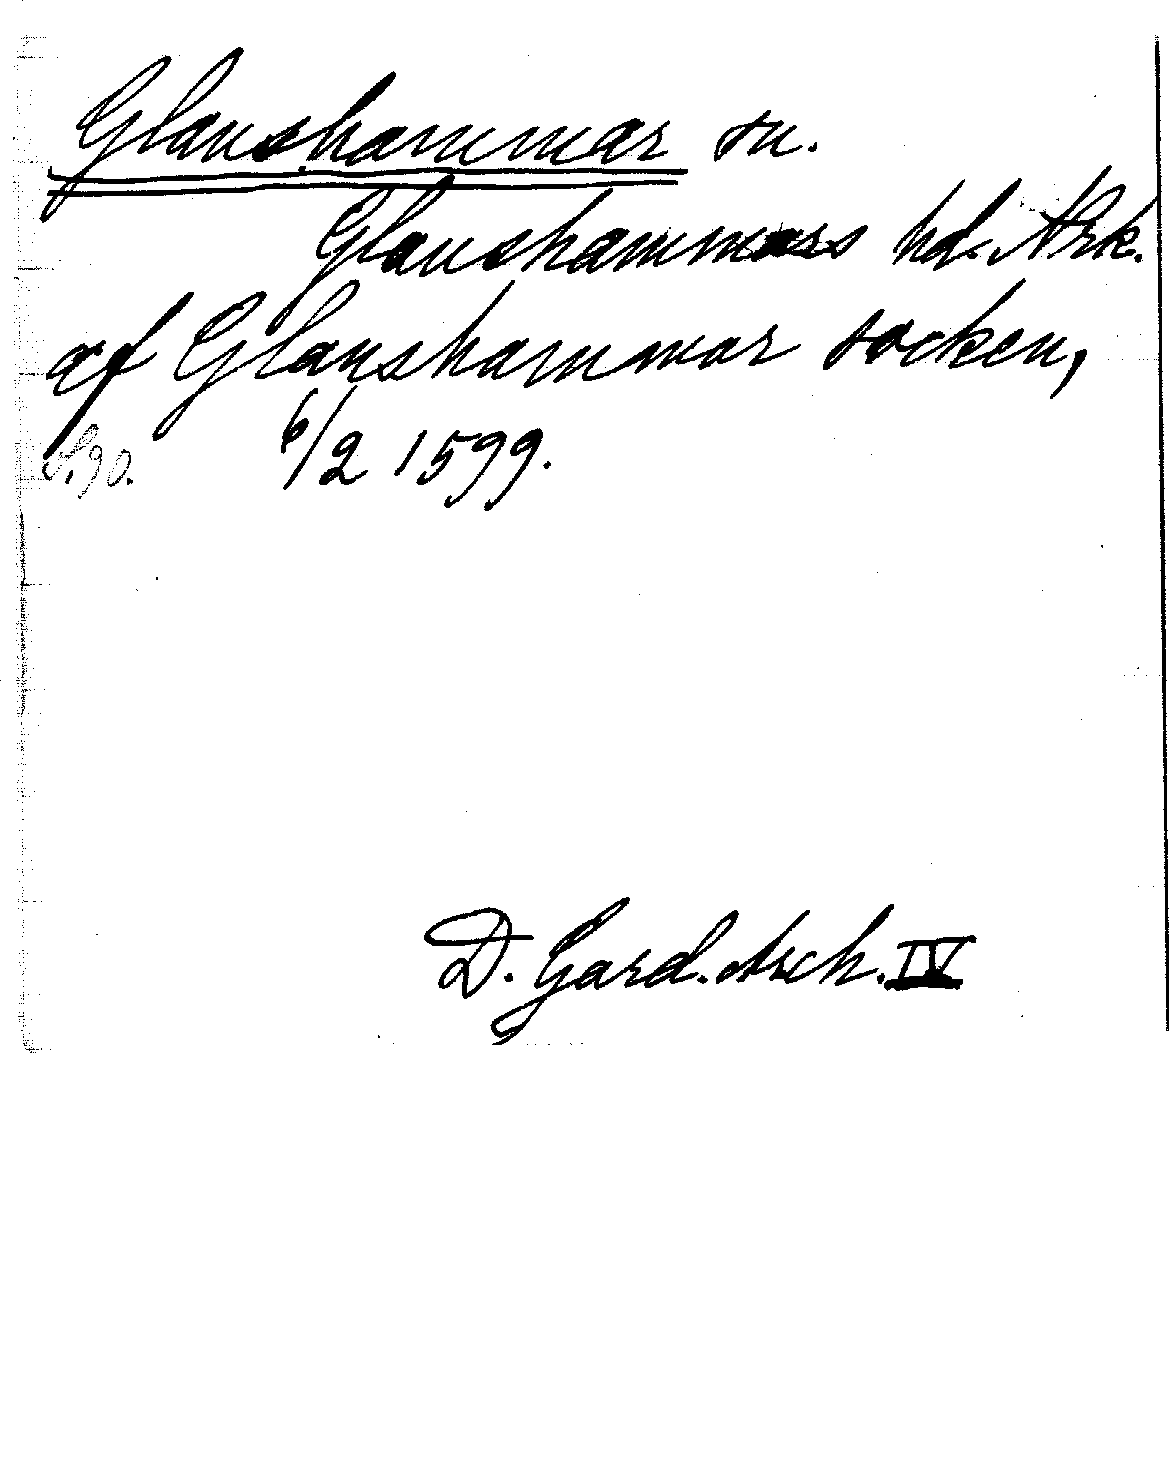 Glanshammar sn.
Glanshammars hd. Nrk.
af Glanshammar socken,
S. 90. 6/2 1599.
D. Gard. Arch. IV